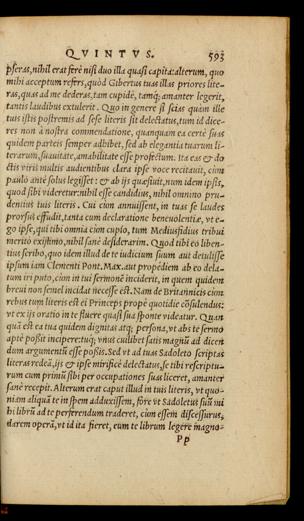 QVINTVS. 593
pseras, nihil erat ferè nisi duo illa quasi capita: alterum, quo
mihi acceptum refers, quòd Gibertus tuas illas priores lite-
ras, quas ad me dederas, tam cupidè, tamq́; amanter legerit,
tantis laudibus extulerit. Quo in genere si scias quàm ille
tuis istis postremis ad sese literis sit delectatus, tum id dice-
res non à nostra commendatione, quanquam ea certè suas
quidem parteis semper adhibet, sed ab elegantia tuarum li-
terarum, suauitate, amabilitate esse profectum. Ita eas & do
ctis viris multis audientibus clara ipse voce recitauit, cùm
paulò antè solus legisset: & ab ijs quæsiuit, num idem ipsis,
quod sibi videretur: nihil esse candidius, nihil omnino pru-
dentius tuis literis. Cui cùm annuissent, in tuas se laudes
prorsus effudit, tanta cum declaratione beneuolentiæ, vt e-
go ipse, qui tibi omnia cùm cupio, tum Mediusfidius tribui
meritò existimo, nihil sanè desiderarim. Quod tibi eò liben-
tius scribo, quo idem illud de te iudicium suum aut detulisse
ipsum iam Clementi Pont. Max. aut propediem ab eo dela-
tum iri puto, cùm in tui sermonē inciderit, in quem quidem
breui non semel incidat necesse est. Nam de Britannicis cùm
rebus tum literis est ei Princeps propè quotidie cōsulendus:
vt ex ijs oratio in te fluere quasi sua sponte videatur. Quan
quā est ea tua quidem dignitas atq; persona, vt abs te sermo
aptè possit incipere: tuq́; vnus cuilibet satis magnū ad dicen
dum argumentū esse possis. Sed vt ad tuas Sadoleto scriptas
literas redeā, ijs & ipse mirificè delectatus, se tibi rescriptu-
rum cum primū sibi per occupationes suas liceret, amanter
sanè recepit. Alterum erat caput illud in tuis literis, vt quo-
niam aliquā te in spem adduxissem, fore vt Sadoletus suū mi
hi librū ad te perferendum traderet, cùm essem discessurus,
darem operā, vt id ita fieret, eum te librum legere magno-
Pp